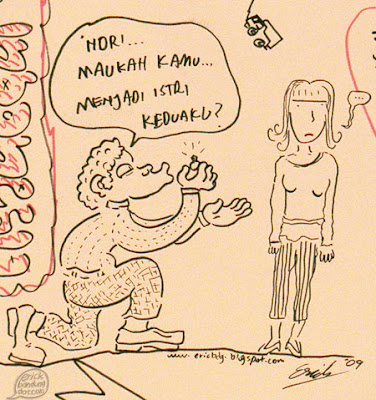 NORI...
MAUKAH KAMU...
MENJADI ISTRI
KEDUAKU?
...
www.ericbdg.blogspot.com
'09
erick
bandung
dotcom